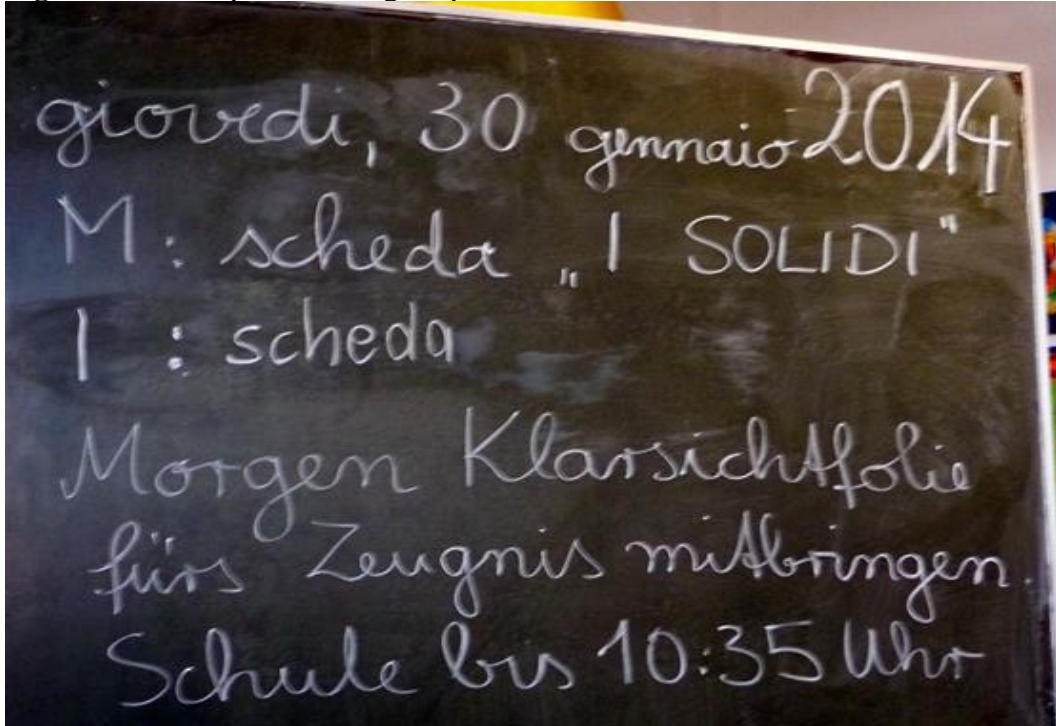 giovedi, 30 gennaio 2014
M: scheda „I SOLIDI"
I : scheda
Morgen Klarsichtfolie
fürs Zeugnis mitbringen.
Schule bis 10:35 Uhr